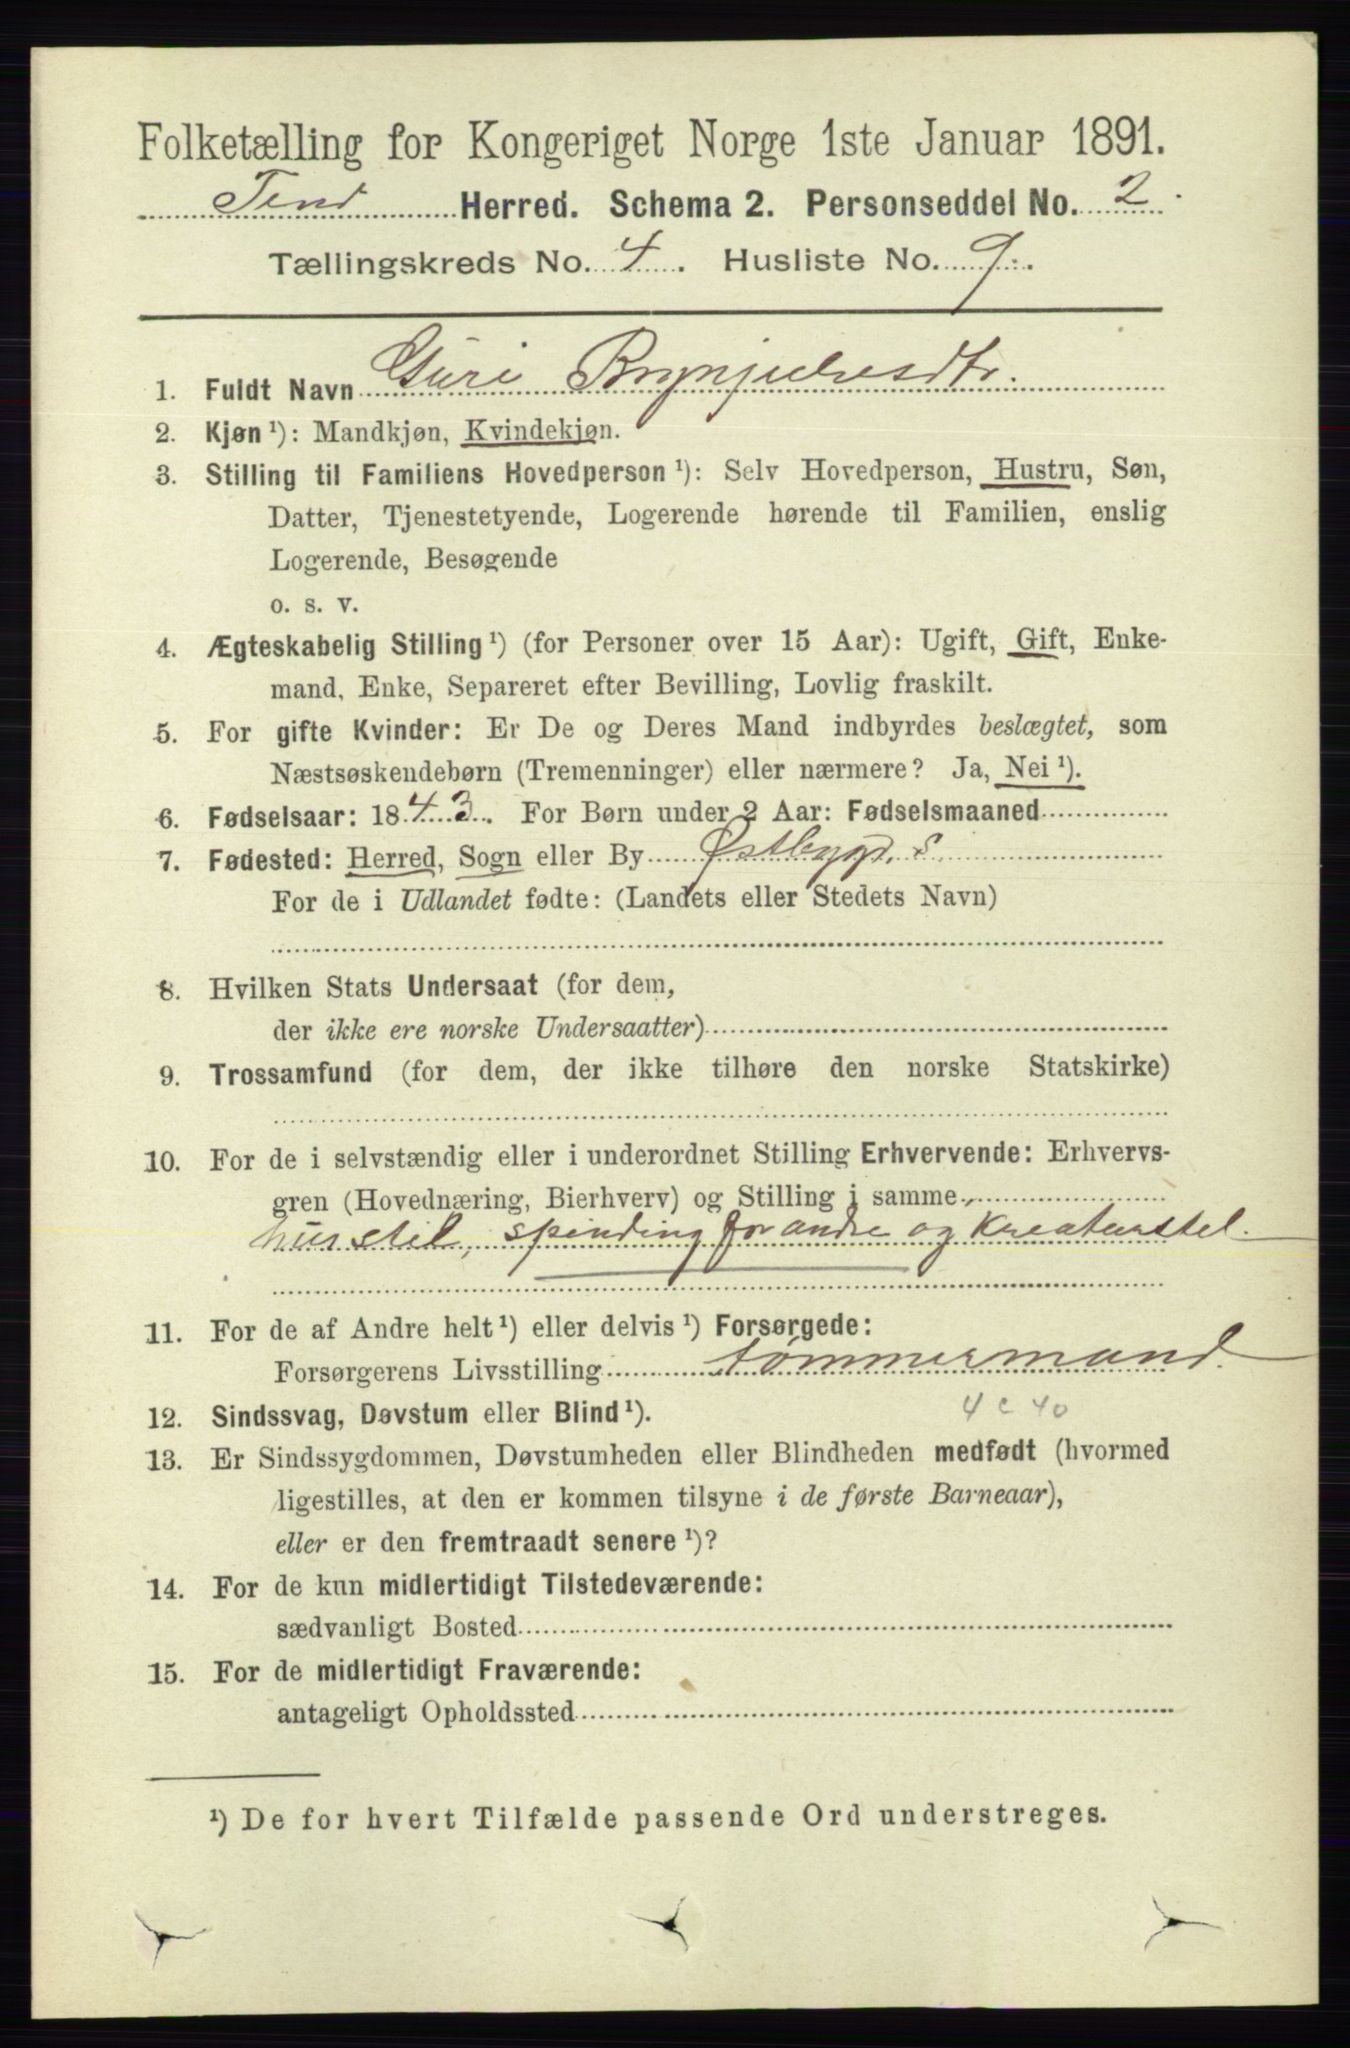 Folketælling for Kongeriget Norge 1ste Januar 1891.
Tind Herred. Schema 2. Personseddel No. 2.
Tællingskreds No. 4. Husliste No. 9.
1. Fuldt Navn Guri Brynjulvsdtr.
2. Kjøn ¹): Mandkjøn, Kvindekjøn.
3. Stilling til Familiens Hovedperson ¹): Selv Hovedperson, Hustru, Søn,
Datter, Tjenestetyende, Logerende hørende til Familien, enslig
Logerende, Besøgende
o. s. v.
4. Ægteskabelig Stilling ¹) (for Personer over 15 Aar): Ugift, Gift, Enke-
mand, Enke, Separeret efter Bevilling, Lovlig fraskilt.
5. For gifte Kvinder: Er De og Deres Mand indbyrdes beslægtet, som
Næstsøskendebørn (Tremenninger) eller nærmere? Ja, Nei ¹).
6. Fødselsaar: 1843. For Børn under 2 Aar: Fødselsmaaned
7. Fødested: Herred, Sogn eller By Østbygd. s.
For de i Udlandet fødte: (Landets eller Stedets Navn)
8. Hvilken Stats Undersaat (for dem,
der ikke ere norske Undersaatter)
9. Trossamfund (for dem, der ikke tilhøre den norske Statskirke)
10. For de i selvstændig eller i underordnet Stilling Erhvervende: Erhvervs-
gren (Hovednæring, Bierhverv) og Stilling i samme
husstel, spinding for andre og Kreaturstel.
11. For de af Andre helt ¹) eller delvis ¹) Forsørgede:
Forsørgerens Livsstilling tømmermand.
12. Sindssvag, Døvstum eller Blind ¹). 4 c 40
13. Er Sindssygdommen, Døvstumheden eller Blindheden medfødt (hvormed
ligestilles, at den er kommen tilsyne i de første Barneaar),
eller er den fremtraadt senere ¹)?
14. For de kun midlertidigt Tilstedeværende:
sædvanligt Bosted
15. For de midlertidigt Fraværende:
antageligt Opholdssted
¹) De for hvert Tilfælde passende Ord understreges.